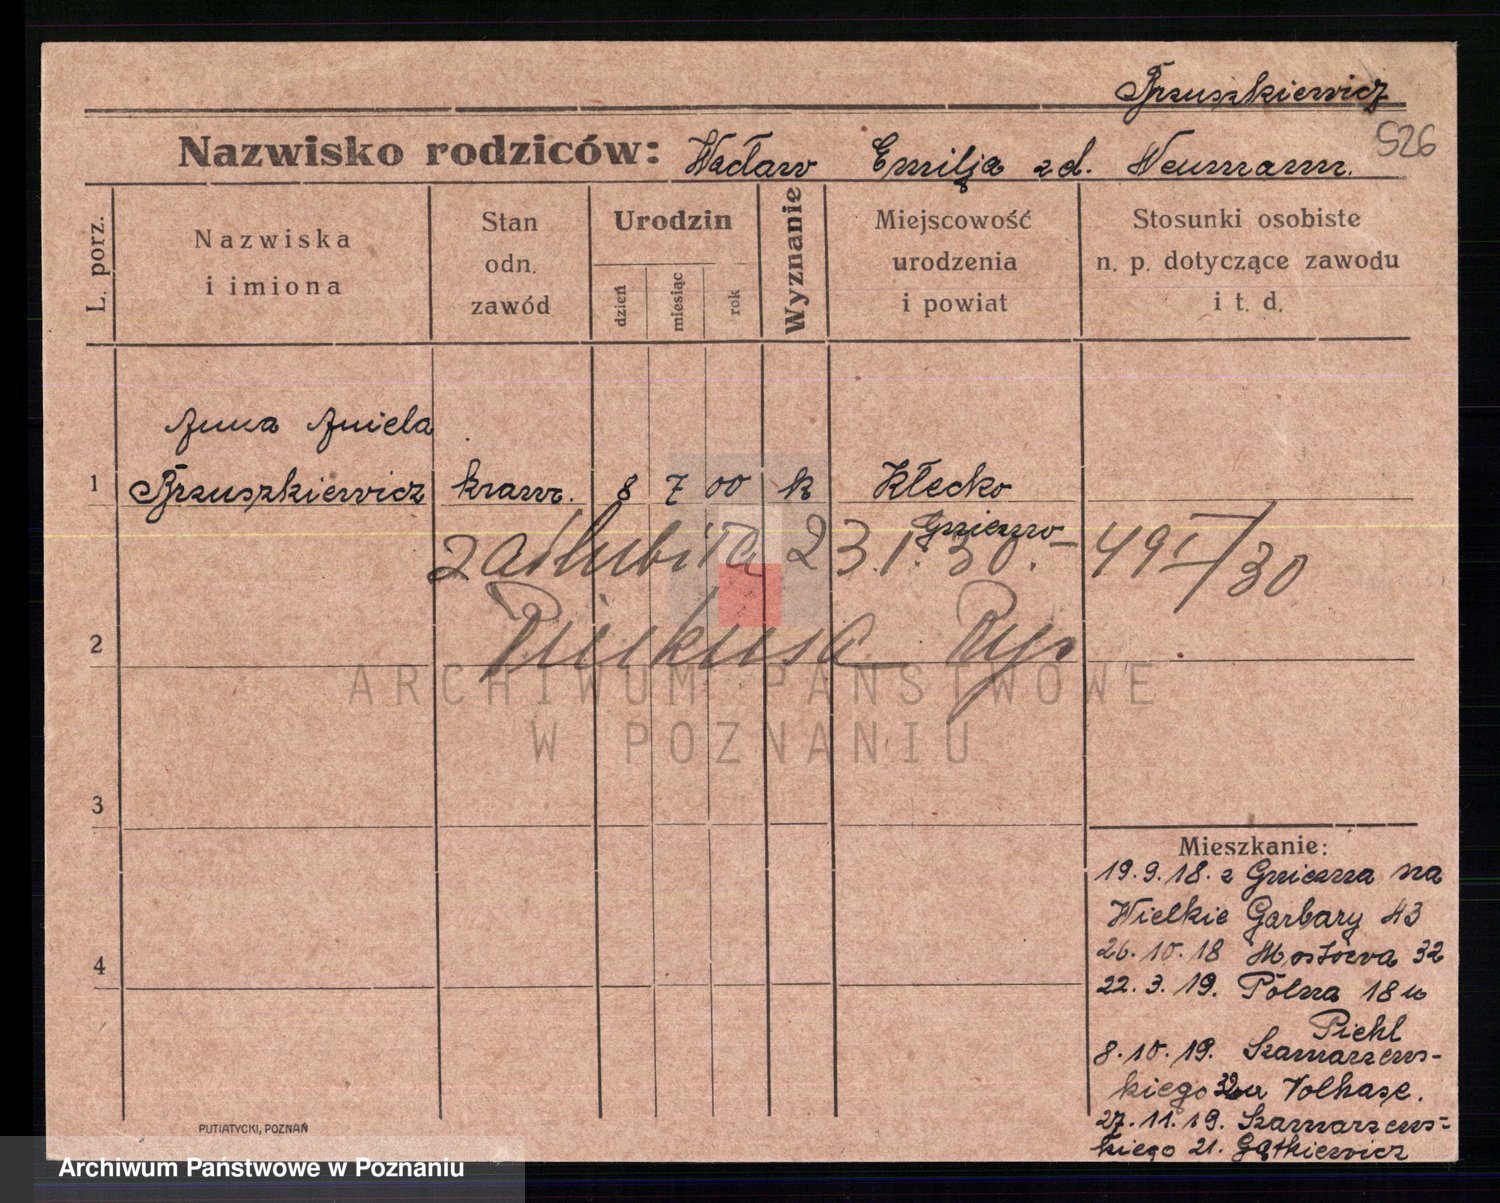 Brzuszkiewicz
526
Nazwisko rodziców: Wacław Emilja zd. Neumann.
L. porz.
Nazwiska i imiona
Stan odn. zawód
Urodzin
dzień
miesiąc
rok
Wyznanie
Miejscowość urodzenia i powiat
Stosunki osobiste n. p. dotyczące zawodu i t. d.
Anna Aniela
1 Brzuszkiewicz kraw. 8 7 00 k Kłecko
Gniezno
zaślubiła 23.1.30. – 49 I/30
2
3
4
Mieszkanie:
19.9.18. z Gniezna na
Wielkie Garbary 43
26.10.18 Mostowa 32
22.3.19. Polna 18 u
Piehl
8.10.19. Szamarzews-
kiego 32 u Volhase.
27.11.19. Szamarzews-
kiego 21. Gątkiewicz
PUTIATYCKI, POZNAŃ
ARCHIWUM PAŃSTWOWE
W POZNANIU
Archiwum Państwowe w Poznaniu